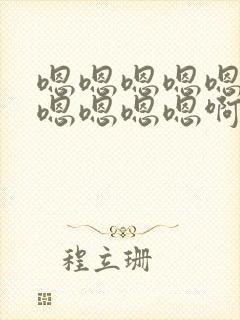 嗯嗯嗯嗯嗯
嗯嗯嗯嗯啊
程立珊